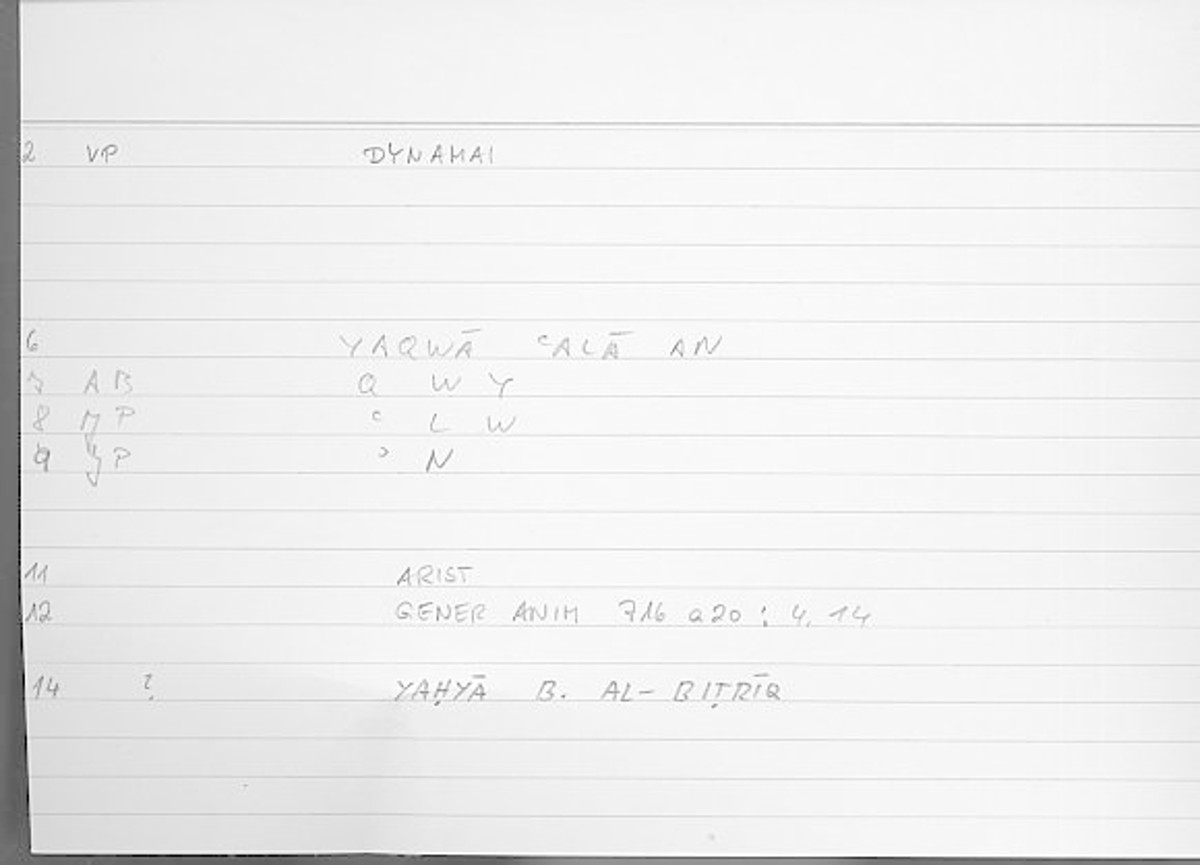 2 VP DYNAMAI
6 YAQWĀ ʿALĀ AN
7 AB Q W Y
8 P ʿ L W
9 P ʾ N
11 ARIST
12 GENER ANIM 716 a20 : 4, 14
14 ? YAḤYĀ B. AL-BIṬRĪQ